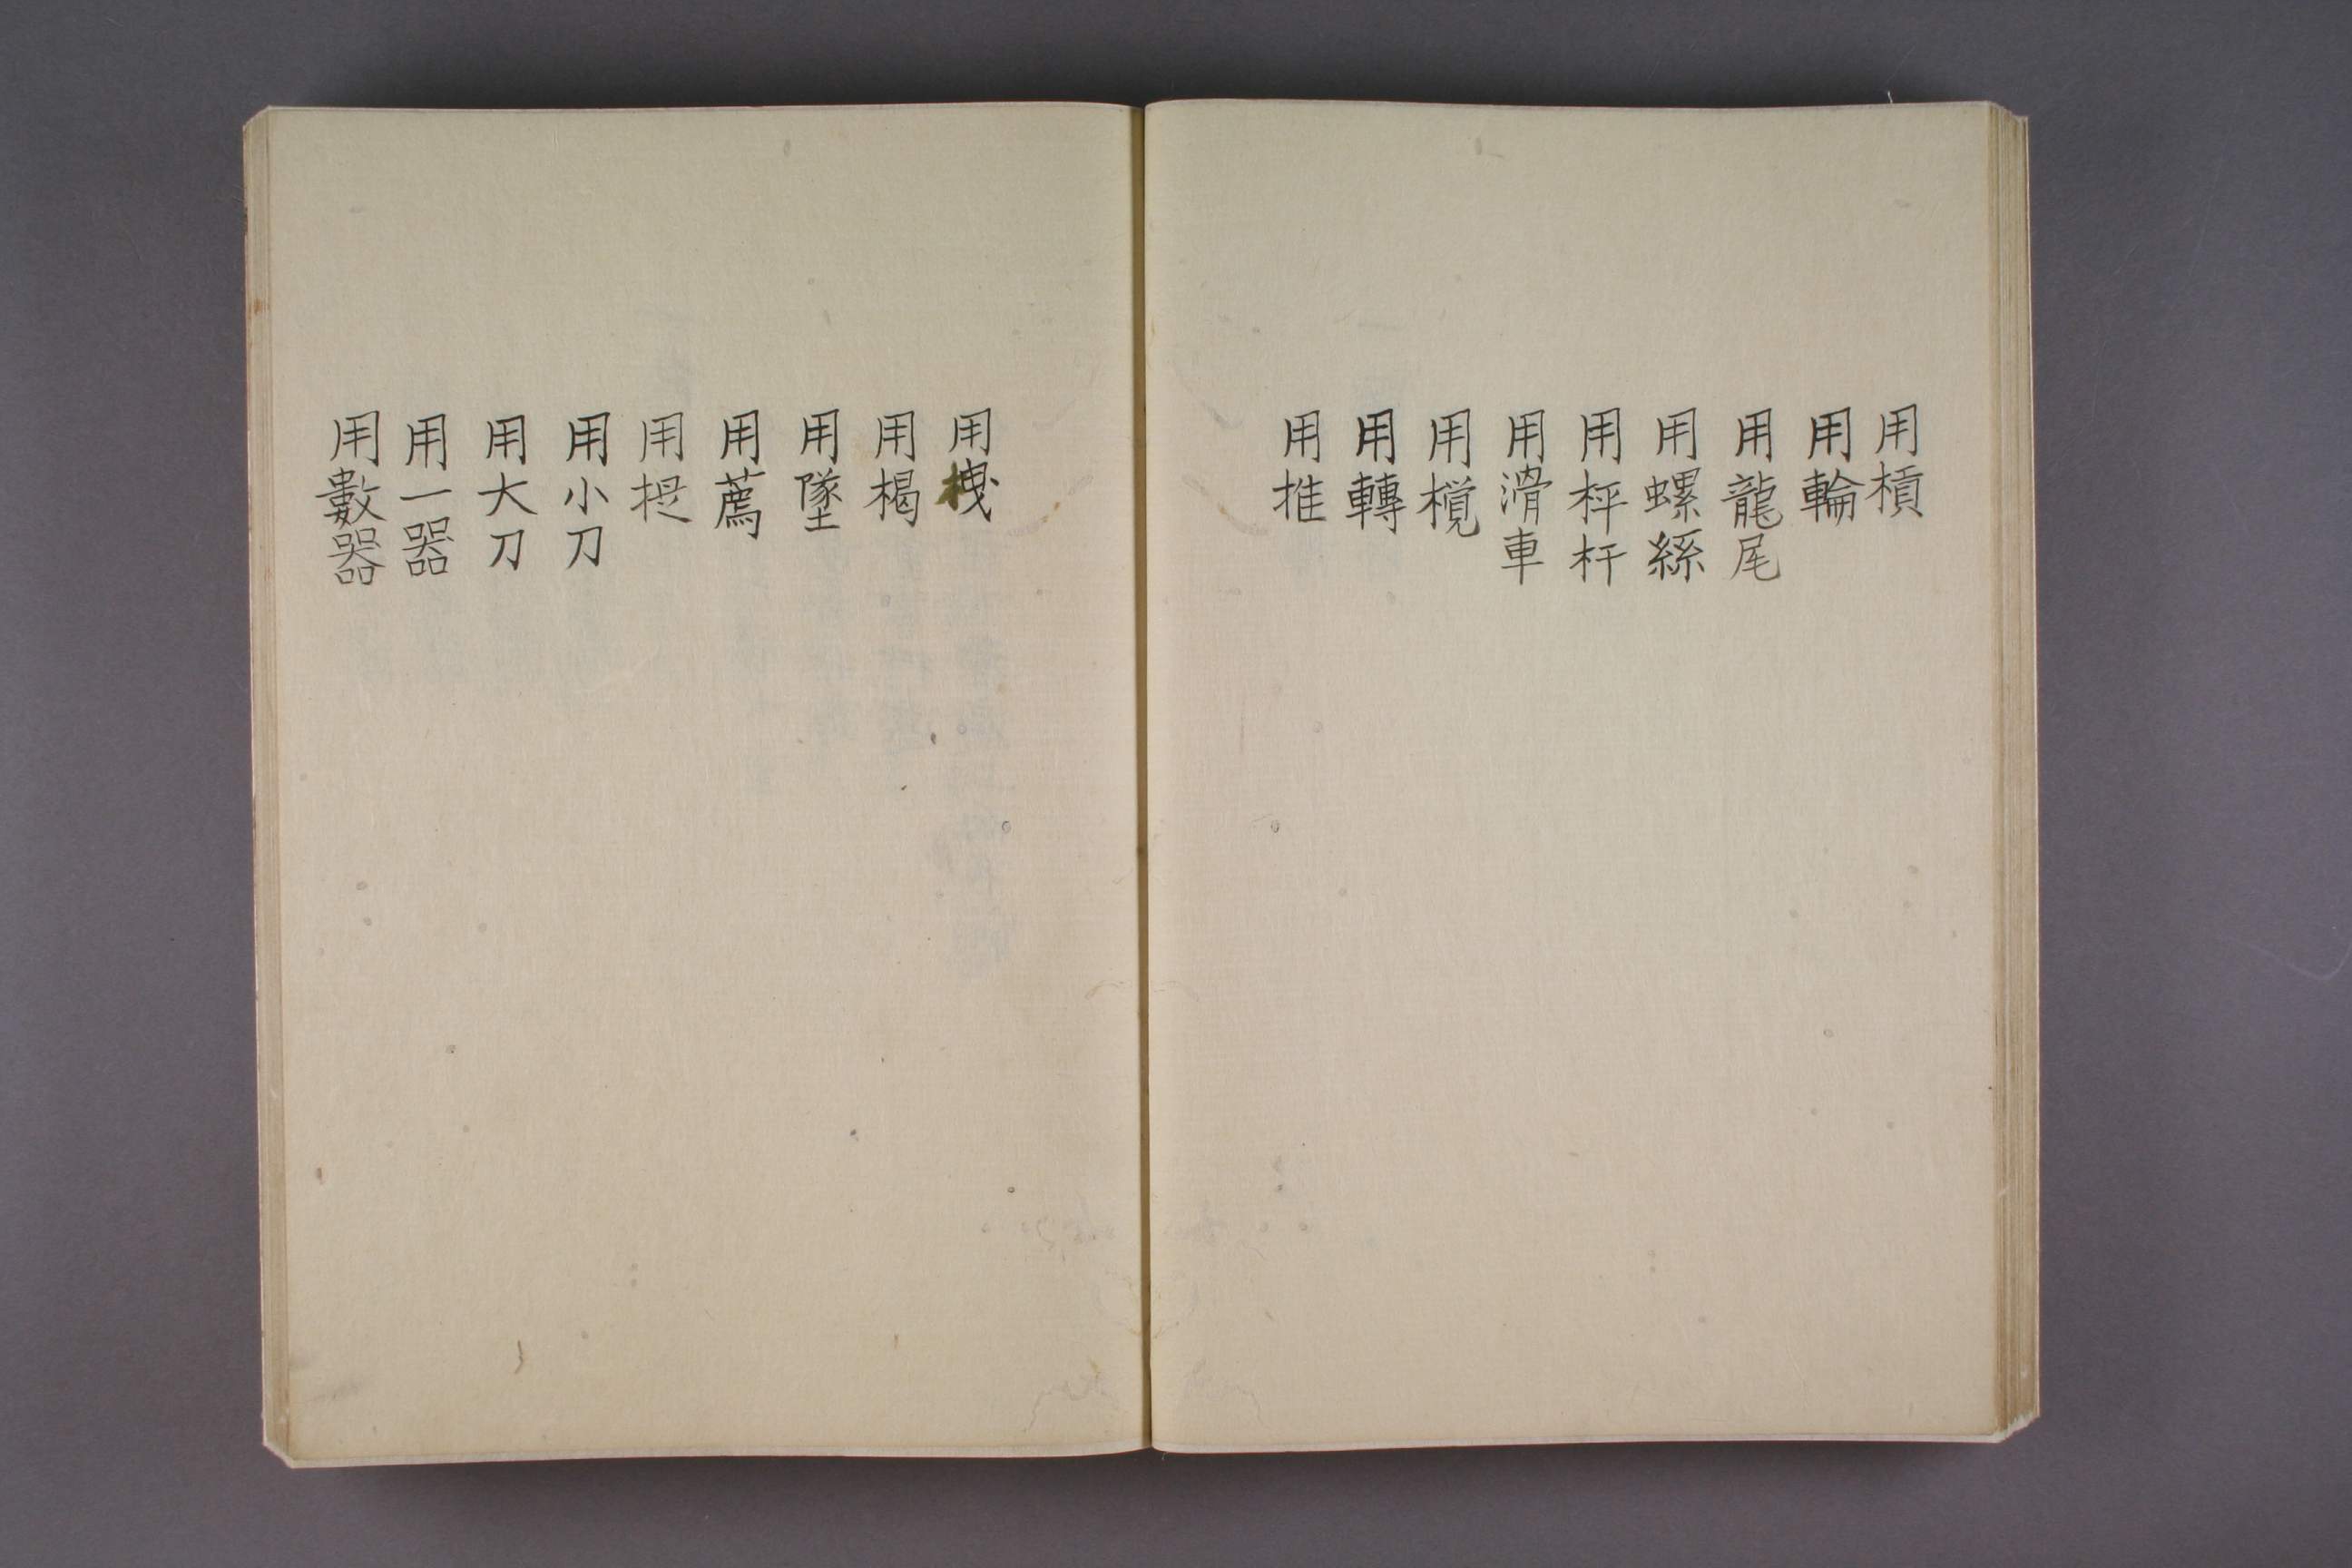 用槓
用輪
用龍尾
用螺絲
用枰杆
用滑車
用攪
用轉
用推
用拽
用楬
用墜
用薦
用提
用小刀
用大刀
用一器
用數器